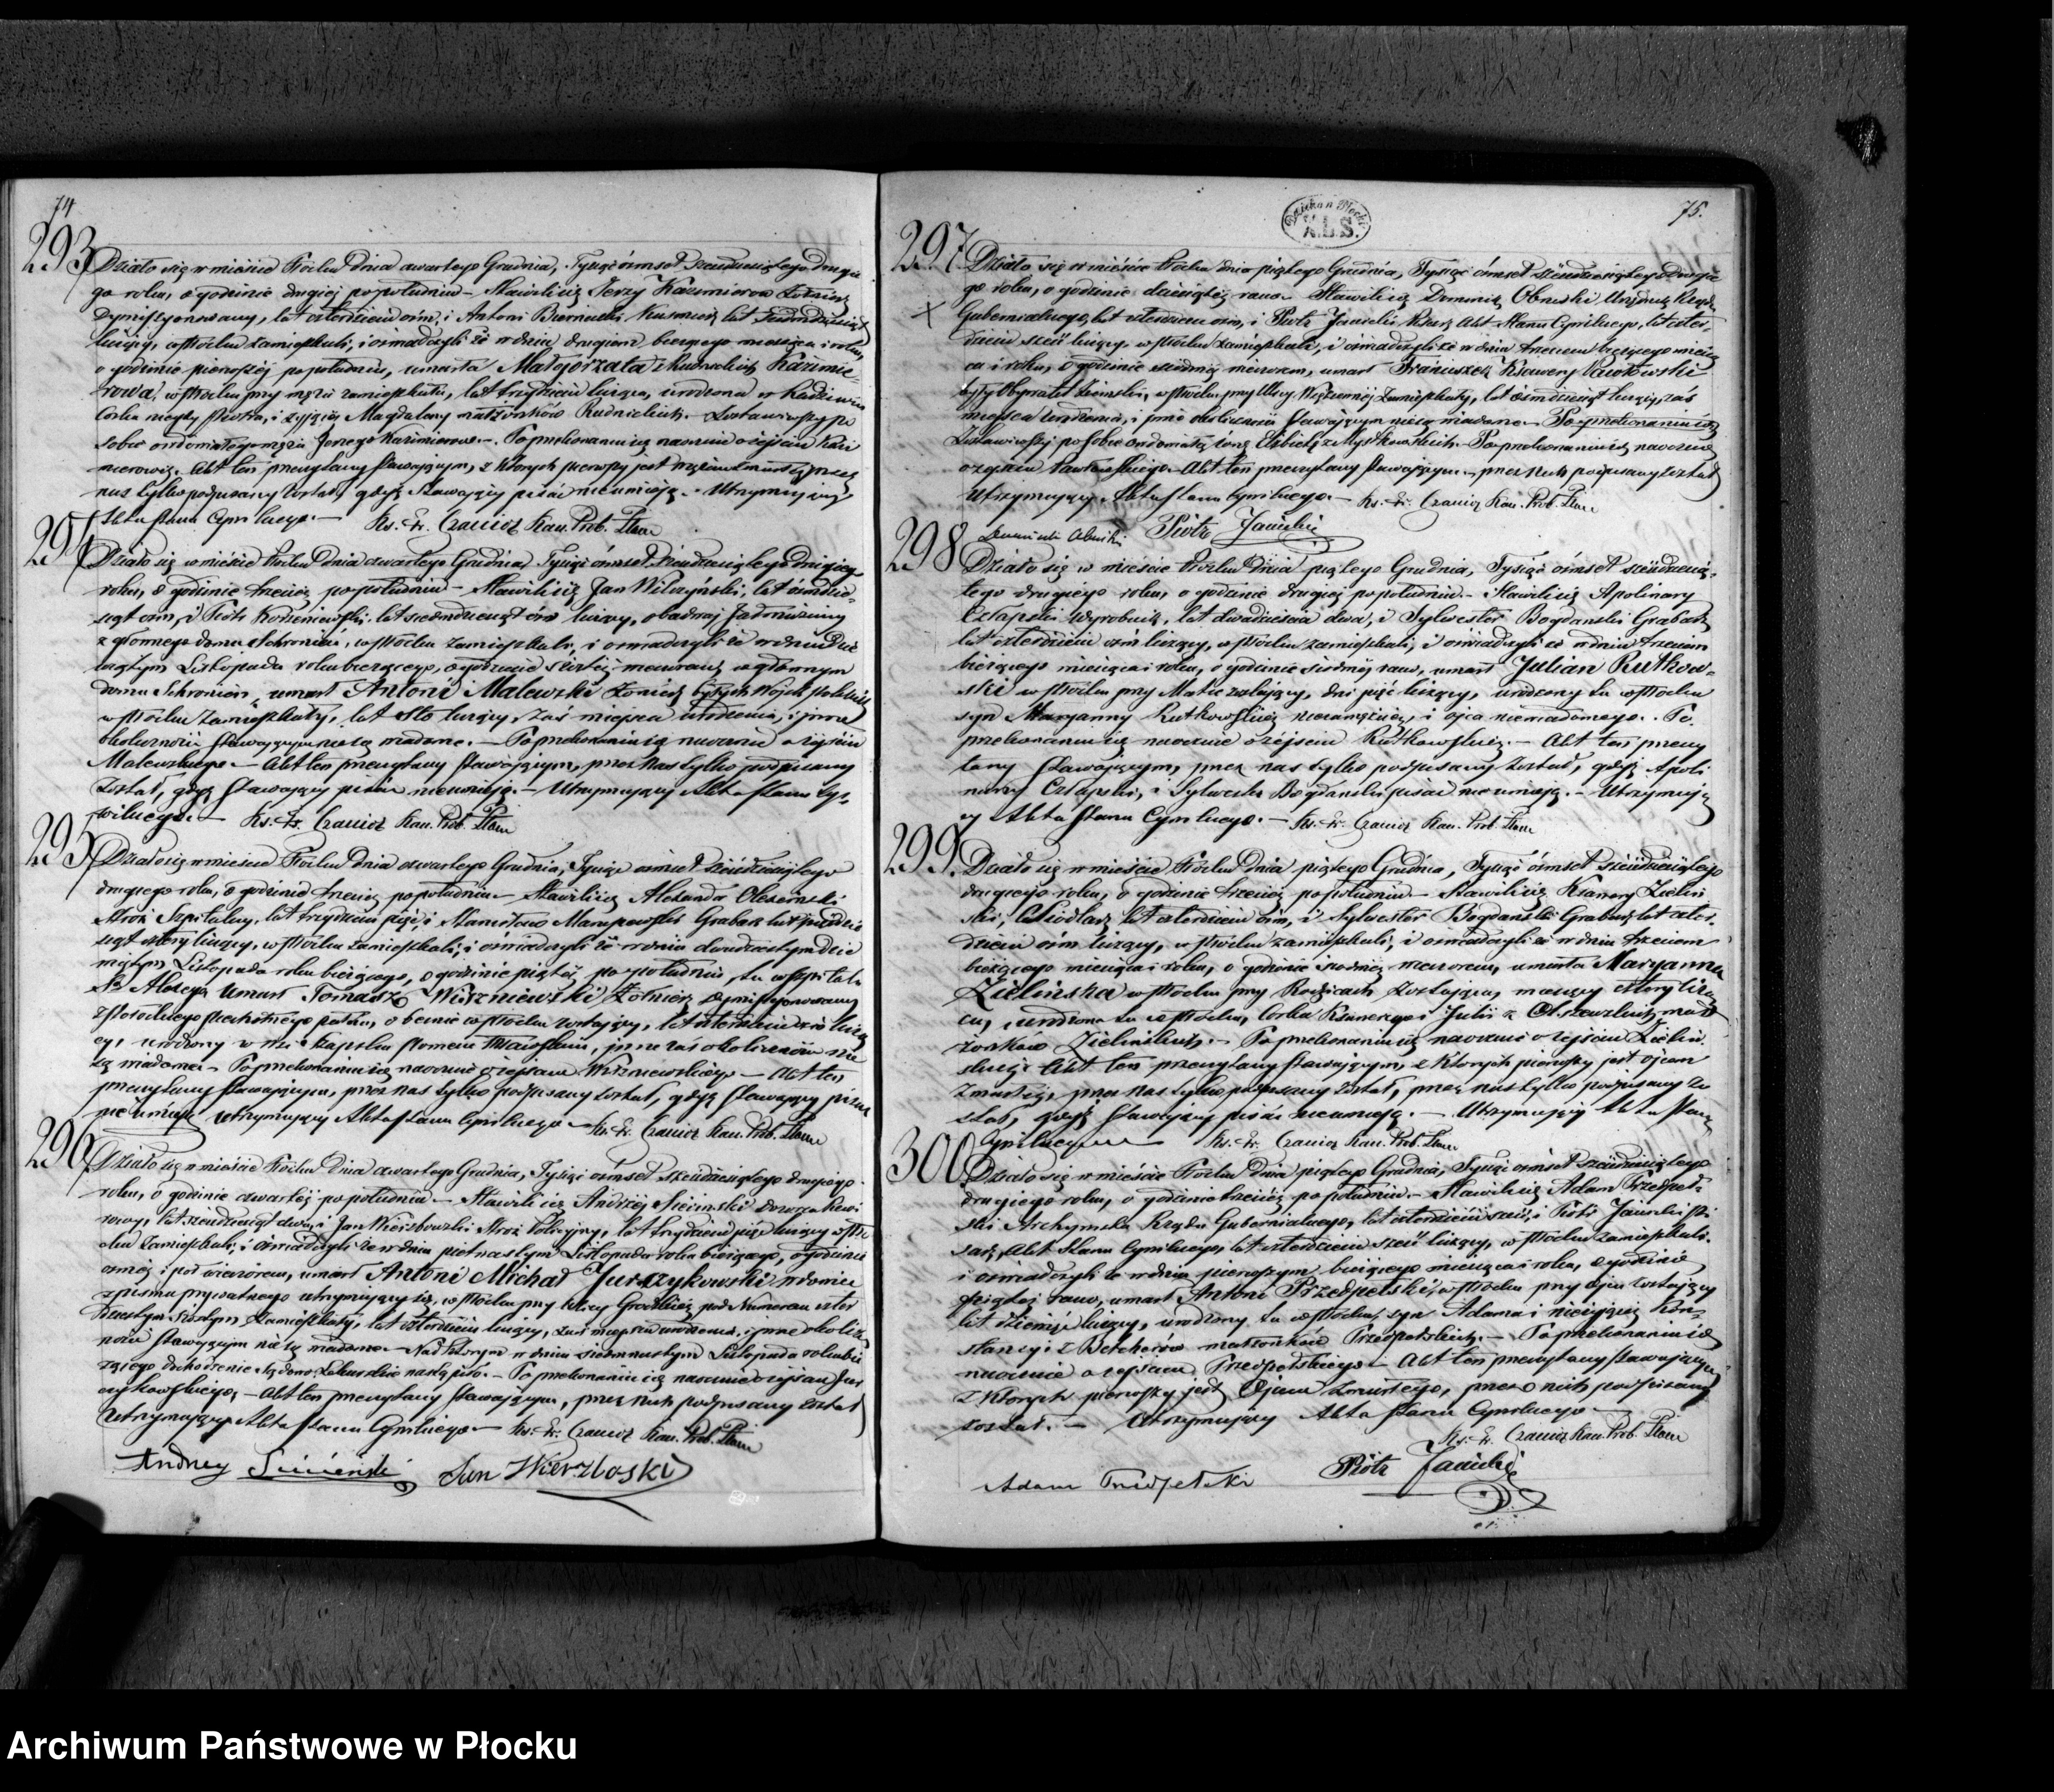 74
293
Działo się w mieście Płocku Dnia czwartego Grudnia, Tysiąc ośmset sześćdziesiątego drugie
go roku, o godzinie drugiej popołudniu – Stawili się Jerzy Kazimierow Żołnierz
Dymisyonowany, lat czterdzieści ośm, i Antoni
liczący, w Płocku zamieszkali, i oświadczyli że w dniu drugim bieżącego miesiąca i roku,
o godzinie pierwszej popołudniu, umarła Małgorzata z Rudnickich Kazimie-
rowa, w Płocku przy mężu zamieszkała, lat trzydzieści licząca, urodzona w
Córka niegdy Piotra, i żyjącej Magdaleny małżonków Rudnickich. Zostawiwszy po
sobie owdowiałego męża Jerzego Kazimierowa. – Po przekonaniu się naocznie o zejściu Kazi
mierowej. Akt ten przeczytany stawającym, z których pierwszy jest mężem zmarłej przez
nas tylko podpisany został, gdyż Stawający pisać nieumieją. – Utrzymujący
Akta stanu Cywilnego. – Ks. Fr. Czaiicz Kan. Prob. Płem
294
Działo się w mieście Płocku Dnia czwartego Grudnia Tysiąc ośmset Sześćdziesiątego drugiego
roku, o godzinie trzeciej popołudniu – Stawili się Jan Wilczyński, lat ośmdzie-
siąt ośm, i Piotr Korzeniewski lat siedmdziesiąt ośm liczący, obadwaj Jałmużnicy
z głównego domu Schronień, w Płocku zamieszkali, i oświadczyli że w dniu
Listopada roku bieżącego, o godzinie szóstej wieczorem w głównym
domu Schronień, umarł Antoni Malewski Żołnierz byłych Wojsk polskich
w Płocku Zamieszkały, lat sto liczący, zaś miejsca urodzenia, i inne
okoliczności stawającym nie są wiadome. – Po przekonaniu się naocznie o zejściu
Malewskiego – Akt ten przeczytany stawającym, przez nas tylko podpisany
został, gdyż stawający pisać nieumieją. – Utrzymujący Akta stanu Cy-
wilnego. – Ks. Fr. Czaiicz Kan. Prob. Płem
295
Działo się w mieście Płocku Dnia czwartego Grudnia, Tysiąc ośmset sześćdziesiątego
drugiego roku, o godzinie trzeciej popołudniu – Stawili się Alexander
Stróż Szpitalny, lat trzydzieści pięć, i Stanisław Grabarz lat pięćdzie
siąt cztery liczący, w Płocku zamieszkali, i oświadczyli że w dniu dwudziestym dzie
wiątym Listopada roku bieżącego, o godzinie piątej popołudniu, tu w Szpitalu
Sgo Alexego umarł Tomasz Wiszniewski Żołnierz dymisyonowany
z pułku, obecnie w Płocku zostający, lat czterdzieści liczą
cy, urodzony w wsi inne zaś okoliczności nie
są wiadome. – Po przekonaniu się naocznie o zejściu Wiszniewskiego – Akt ten
przeczytany stawającym, przez nas tylko podpisany został, gdyż stawający pisać
nie umieją Utrzymujący Akta Stanu Cywilnego – Ks. Fr. Czaiicz Kan. Prob. Płem
296
Działo się w mieście Płocku Dnia czwartego Grudnia, Tysiąc ośmset sześćdziesiątego drugiego
roku, o godzinie czwartej popołudniu – Stawili się Andrzej
lat sześćdziesiąt dwa, i Jan Wierzbowski Stróż Policyjny, lat trzydzieści pięć liczący w Pło
cku zamieszkali, i oświadczyli że w dniu piętnastym Listopada roku bieżącego, o godzinie
ósmej i pół wieczorem, umarł Antoni Michał Jurczykowski w domu
z pisma prywatnego utrzymujący się, w Płocku przy Ulicy Grodzkiej pod Numerem czter
dziestym szóstym Zamieszkały, lat czterdzieści liczący, zaś miejsca urodzenia, i inne okolicz
ności stawającym nie są wiadome. – Nad którym w dniu siedmnastym Listopada roku bie
żącego dochodzenie Sądowo Lekarskie nastąpiło. – Po przekonaniu się naocznie o zejściu Jur
czykowskiego. – Akt ten przeczytany stawającym, przez nich podpisany został
Utrzymujący Akta Stanu Cywilnego – Ks. Fr. Czaiicz Kan. Prob. Płem
Andrzej Jan Wierzboski
75.
Dziekan Płocki
X.L.S.
297
Działo się w mieście Płocku dnia piątego Grudnia, Tysiąc ośmset sześćdziesiątego drugie
go roku, o godzinie dziesiątej rano – Stawili się Dominik Olsnicki Urzędnik Rządu
X
Gubernialnego, lat czterdzieści ośm, i Piotr Janicki Pisarz Akt Stanu Cywilnego, lat czter-
dzieści sześć liczący, w Płocku zamieszkali, i oświadczyli że w dniu trzecim bieżącego miesią
ca i roku, o godzinie siódmej wieczorem, umarł Franciszek Xawery Pawłowski
były Obywatel Ziemski, w Płocku przy Ulicy Więziennej Zamieszkały, lat ośmdziesiąt liczący, zaś
miejsca Urodzenia, i inne okoliczności stawającym nie są wiadome – Po przekonaniu się
Zostawiwszy po sobie owdowiałą żonę Elżbietę z Myszkowskich. Po przekonaniu się naocznie
o zejściu Pawłowskiego. Akt ten przeczytany stawającym, przez nich podpisany został
Utrzymujący Akta Stanu Cywilnego. – Ks. Fr. Czaiicz Kan. Prob. Płem
Dominik Olsnicki Piotr Janicki
298
Działo się w mieście Płocku Dnia piątego Grudnia, Tysiąc ośmset sześćdziesią-
tego drugiego roku, o godzinie drugiej popołudniu. – Stawili się Apolinary
Człapski Wyrobnik, lat dwadzieścia dwa, i Sylwester Bogdański Grabarz
lat czterdzieści ośm liczący, w Płocku zamieszkali, i oświadczyli że w dniu trzecim
bieżącego miesiąca i roku, o godzinie siódmej rano, umarł Julian Rutkow-
ski w Płocku przy Matce zostający, dni pięć liczący, urodzony tu w Płocku
syn Maryanny Rutkowskiej niezamężnej, i ojca niewiadomego. – Po
przekonaniu się naocznie o zejściu Rutkowskiego. – Akt ten przeczy
tany stawającym, przez nas tylko podpisany został, gdyż Apoli
nary Człapski, i Sylwester Bogdański pisać nie umieją. – Utrzymują
cy Akta Stanu Cywilnego. – Ks. Fr. Czaiicz Kan. Prob. Płem
299.
Działo się w mieście Płocku Dnia piątego Grudnia, Tysiąc ośmset sześćdziesiątego
drugiego roku, o godzinie trzeciej popołudniu – Stawili się Ksawery Zieliń
ski, Siodlarz lat czterdzieści ośm, i Sylwester Bogdański Grabarz lat czter-
dzieści ośm liczący, w Płocku zamieszkali, i oświadczyli że w dniu trzecim
bieżącego miesiąca i roku, o godzinie siódmej wieczorem, umarła Maryanna
Zielińska w Płocku przy Rodzicach zostająca, miesięcy cztery liczą
ca, urodzona tu w Płocku, Córka Ksawerego i Julii z Olszewskich mał
żonków Zielińskich. – Po przekonaniu się naocznie o zejściu Zieliń-
skiej Akt ten przeczytany stawającym, z których pierwszy jest ojcem
Zmarłej, przez nas tylko podpisany został, przez nas tylko podpisany zo
stał, gdyż Stawający pisać nieumieją. – Utrzymujący Akta Stanu
Cywilnego – Ks. Fr. Czaiicz Kan. Prob. Płem
300
Działo się w mieście Płocku Dnia piątego Grudnia, Tysiąc ośmset sześćdziesiątego
drugiego roku, o godzinie trzeciej popołudniu. – Stawili się Adam Przedpeł-
ski Archiwista Rządu Gubernialnego, lat czterdzieści sześć, i Piotr Janicki Pi
sarz Akt Stanu Cywilnego, lat czterdzieści sześć liczący, w Płocku zamieszkali
i oświadczyli że w dniu pierwszym bieżącego miesiąca i roku, o godzinie
piątej rano, umarł Antoni Przedpełski, w Płocku przy Ojcu zostający
lat liczący, urodzony tu w Płocku, syn Adama i nieżyjącej Kon-
stancyi z Betcherów małżonków Przedpełskich. – Po przekonaniu się
naocznie o zejściu Przedpełskiego – Akt ten przeczytany stawającym
z których pierwszy jest Ojcem zmarłego, przez nich podpisany
został. – Utrzymujący Akta Stanu Cywilnego –
Ks. Fr. Czaiicz Kan. Prob. Płem
Adam Przedpełski Piotr Janicki
Archiwum Państwowe w Płocku